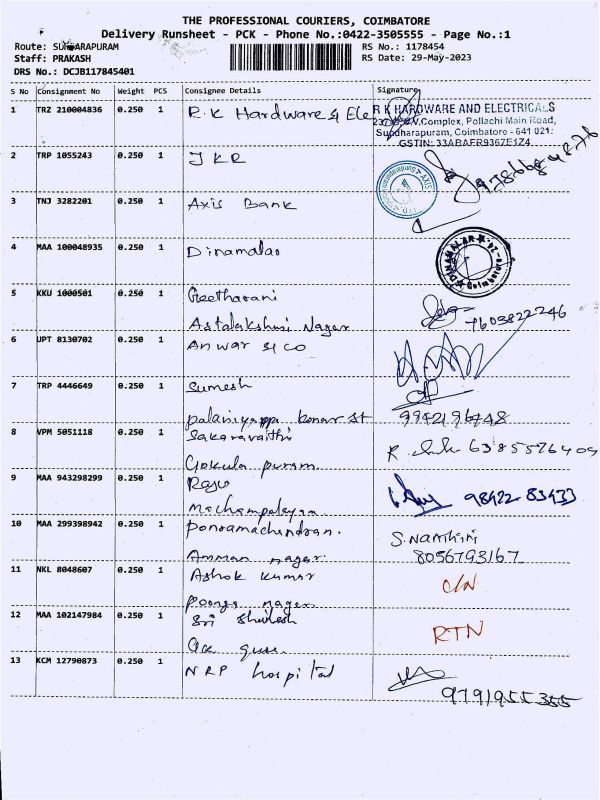 THE PROFESSIONAL COURIERS, COIMBATORE
Delivery Runsheet - PCK - Phone No.:0422-3505555 - Page No.:1
Route: SUNDARAPURAM
RS No.: 1178454
Staff: PRAKASH
RS Date: 29-May-2023
DRS No.: DCJB117845401
S No Consignment No Weight PCS Consignee Details Signature
1 TRZ 210004836 0.250 1 R.K Hardware & Ele
R K HARDWARE AND ELECTRICALS
Complex, Pollachi Main Road,
Sundharapuram, Coimbatore - 641 021.
GSTIN: 33ABAFR9367E1Z4
2 TRP 1055243 0.250 1 JKR
3 TNJ 3282201 0.250 1 Axis Bank
AXIS
4 MAA 100048935 0.250 1 Dinamalar
DINAMALAR
Coimbatore
5 KKU 1000501 0.250 1 Geetharani
Astalakshmi Nagar
7603822246
6 UPT 8130702 0.250 1 Anwar & co
7 TRP 4446649 0.250 1 Sumesh
palaniyappa konar st
9942196748
8 VPM 5051118 0.250 1 Sakaravaithi
Gokula puram.
6385576409
9 MAA 943298299 0.250 1 Raju
Machampalayam
98422 83433
10 MAA 299398942 0.250 1 Ponramachandran.
Amman nagar.
S. Nanthini
8056793167
11 NKL 8048607 0.250 1 Ashok kumar
Poonga nagar
12 MAA 102147984 0.250 1 Sri
RTN
13 KCM 12790873 0.250 1 NRP hospital
9791955355